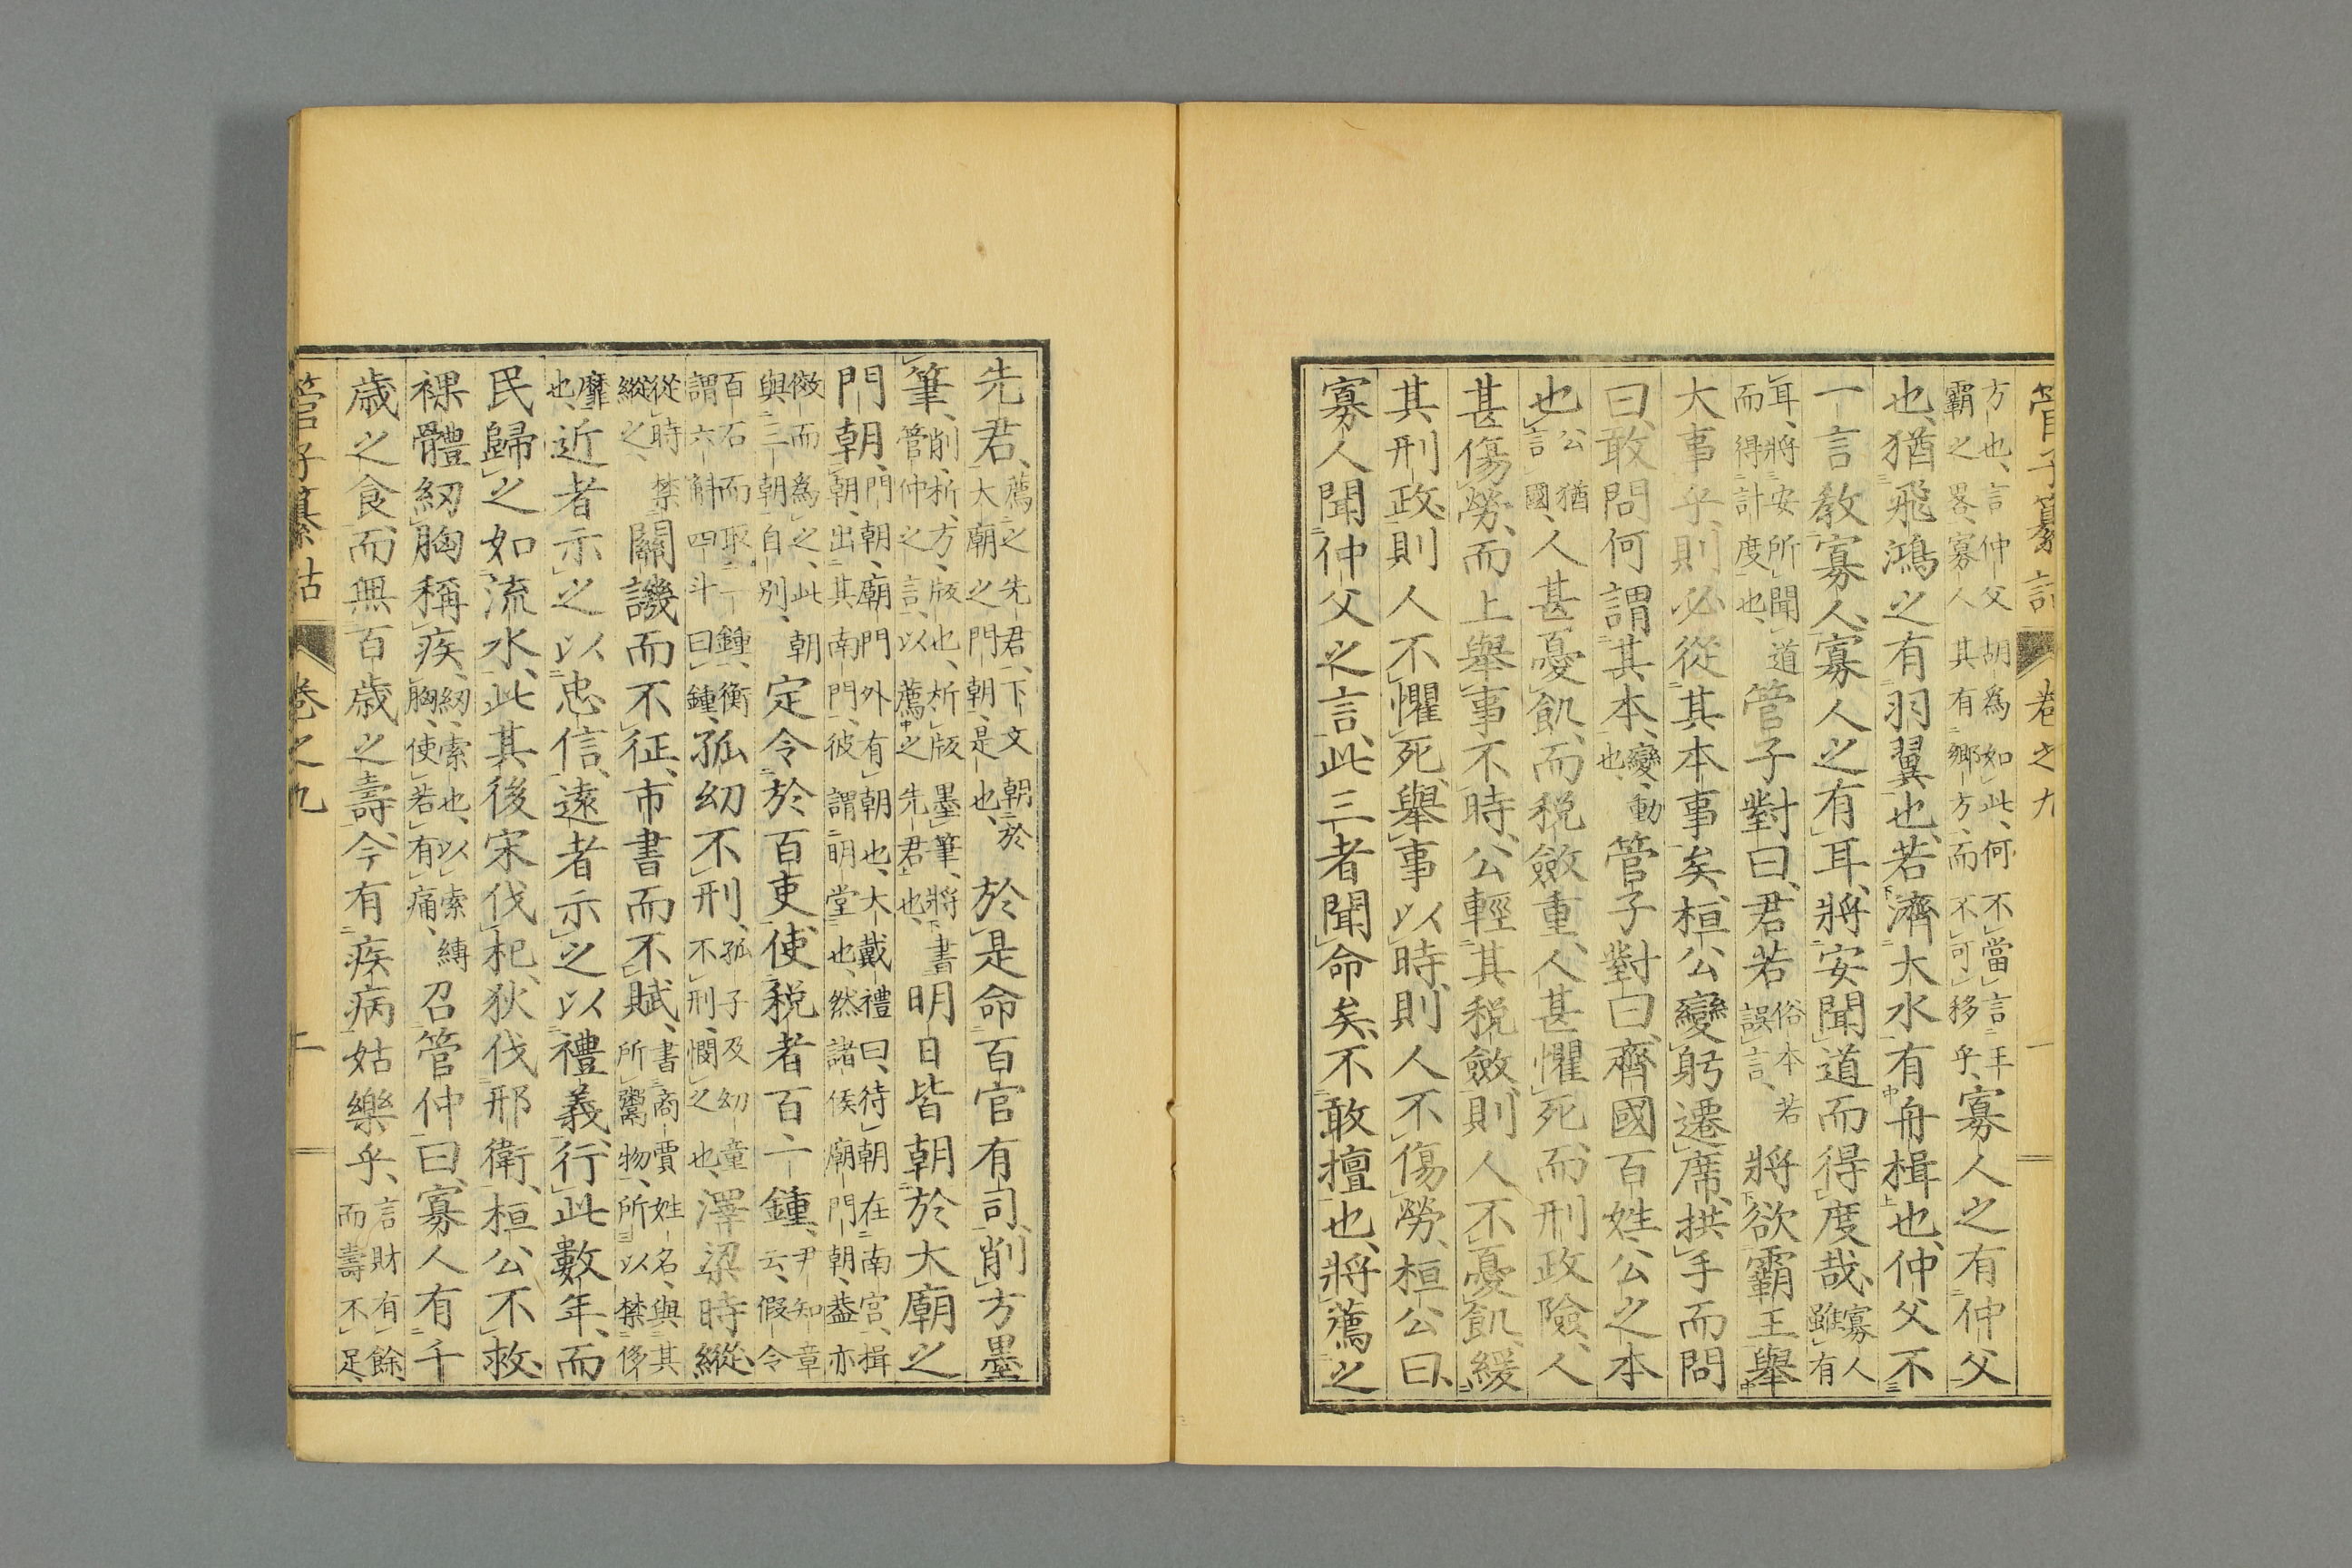 管子纂詁 卷之九 一
方也、言仲父胡為如此、何不當言王霸之畧、寡人其有鄉方、而不可移乎、寡人之有仲父
也、猶飛鴻之有羽翼也、若濟大水有舟楫也、仲父不
一言教寡人、寡人之有耳、將安聞道而得度哉、寡人雖有
耳、將安所聞道而得計度也、管子對曰、君若俗本若誤言、將欲霸王舉
大事乎、則必從其本事矣、桓公變躬遷席、拱手而問
曰、敢問何謂其本、變、動也、管子對曰、齊國百姓、公之本
也、公猶言國、人甚憂飢、而税斂重、人甚懼死、而刑政險、人
甚傷勞、而上舉事不時、公輕其税斂、則人不憂飢、緩
其刑政、則人不懼死、舉事以時、則人不傷勞、桓公曰、
寡人聞仲父之言、此三者聞命矣、不敢擅也、將薦之
先君、薦之先君、下文朝於大廟之門朝、是也、於是命百官有司、削方墨
筆、削、析、方、版也、析版墨筆、將書管仲之言、以薦之先君也、明日皆朝於大廟之
門朝、門朝、廟門外有朝也、大戴禮曰、待朝在南宮、揖朝、出其南門、彼謂明堂也、然諸侯廟門朝、葢亦
倣而為之、此朝與三朝自別、定令於百吏、使税者百一鍾、尹知章云、假令
百石而取一鍾、衡謂六斛四斗曰鍾、孤幼不刑、孤子及幼童不刑、憫之也、澤梁時縱、
從時禁縱之、關譏而不征、市書而不賦、書商賈姓名、與其所鬻物、所以禁侈
靡也、近者示之以忠信、遠者示之以禮義、行此數年、而
民歸之如流水、此其後宋伐杞、狄伐邢衛、桓公不救、
裸體紉胸稱疾、紉、索也、以索縛胸、使若有痛、召管仲曰、寡人有千
歲之食、而無百歲之壽、今有疾病、姑樂乎、言財有餘而壽不足、
管子纂詁 卷之九 二